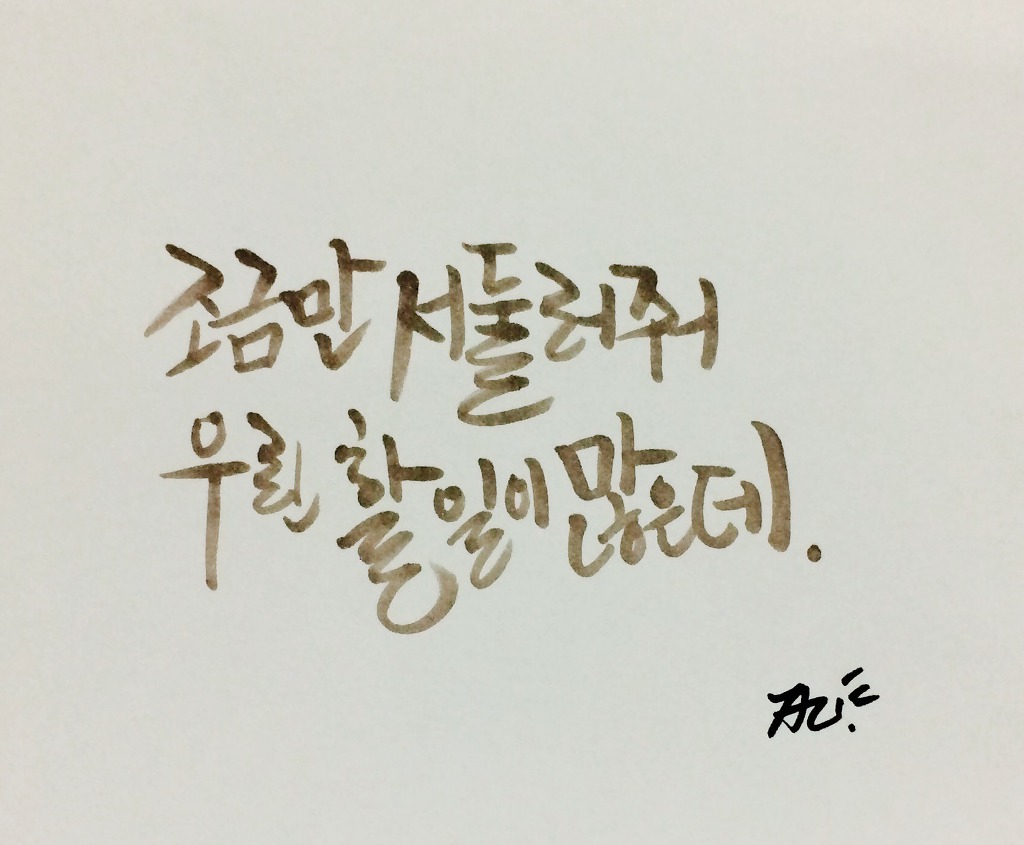 조금만 서둘러줘
우린 할 일이 많은데.